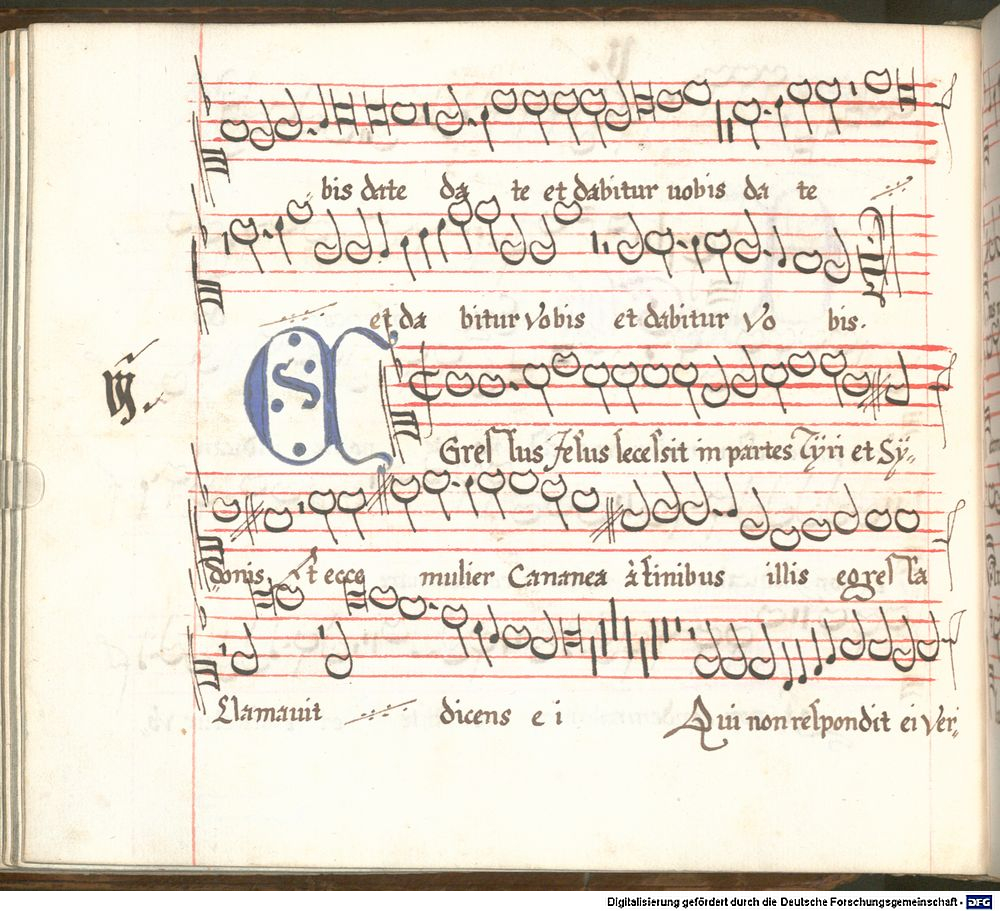 bis date da te et dabitur uobis da te
et da bitur vobis et dabitur vo bis.
Gressus Jesus secessit in partes Tÿri et Sÿ,,
donis, et ecce mulier Cananea à finibus illis egressa
Clamauit dicens e i Qui non respondit ei ver,,
Digitalisierung gefördert durch die Deutsche Forschungsgemeinschaft - DFG